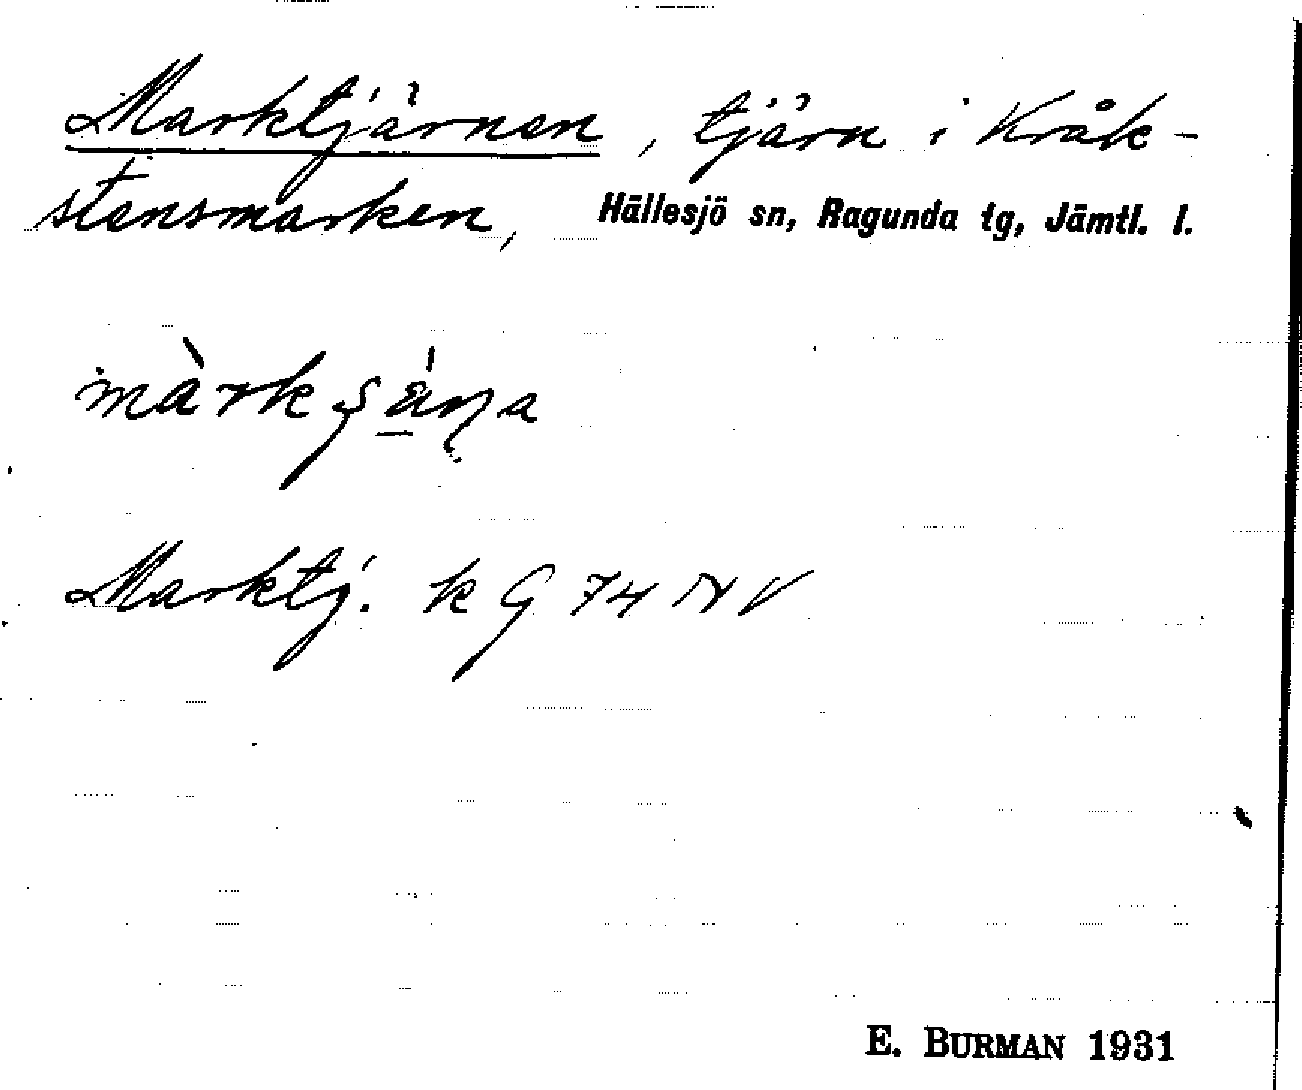 Marktjärnen, tjärn i Kråk-
stensmarken, Hällesjö sn, Ragunda tg, Jämtl. l.
Marktj. k G 74 NV
E. BURMAN 1931